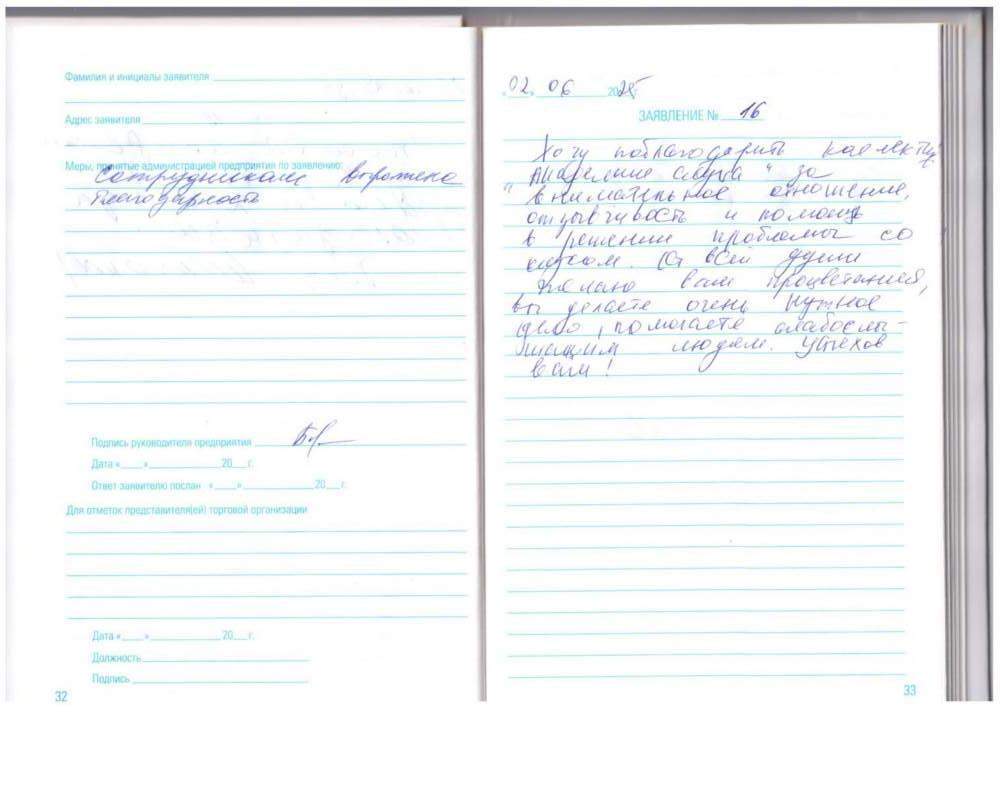 Фамилия и инициалы заявителя
Адрес заявителя
Меры, принятые администрацией предприятия по заявлению:
Сотрудникам выражена
благодарность
Подпись руководителя предприятия
Дата «___» ___ 20__ г.
Ответ заявителю послан «___» ___ 20__ г.
Для отметок представителя(ей) торговой организации
Дата «___» ___ 20__ г.
Должность
Подпись
32
02. 06 2025
ЗАЯВЛЕНИЕ № 16
Хочу поблагодарить коллектив
"Академии слуха" за
внимательное отношение,
отзывчивость и помощь
в решении проблемы со
слухом. От всей души
желаю вам процветания,
вы делаете очень нужное
дело, помогаете слабослы-
шащим людям. Успехов
вам!
33